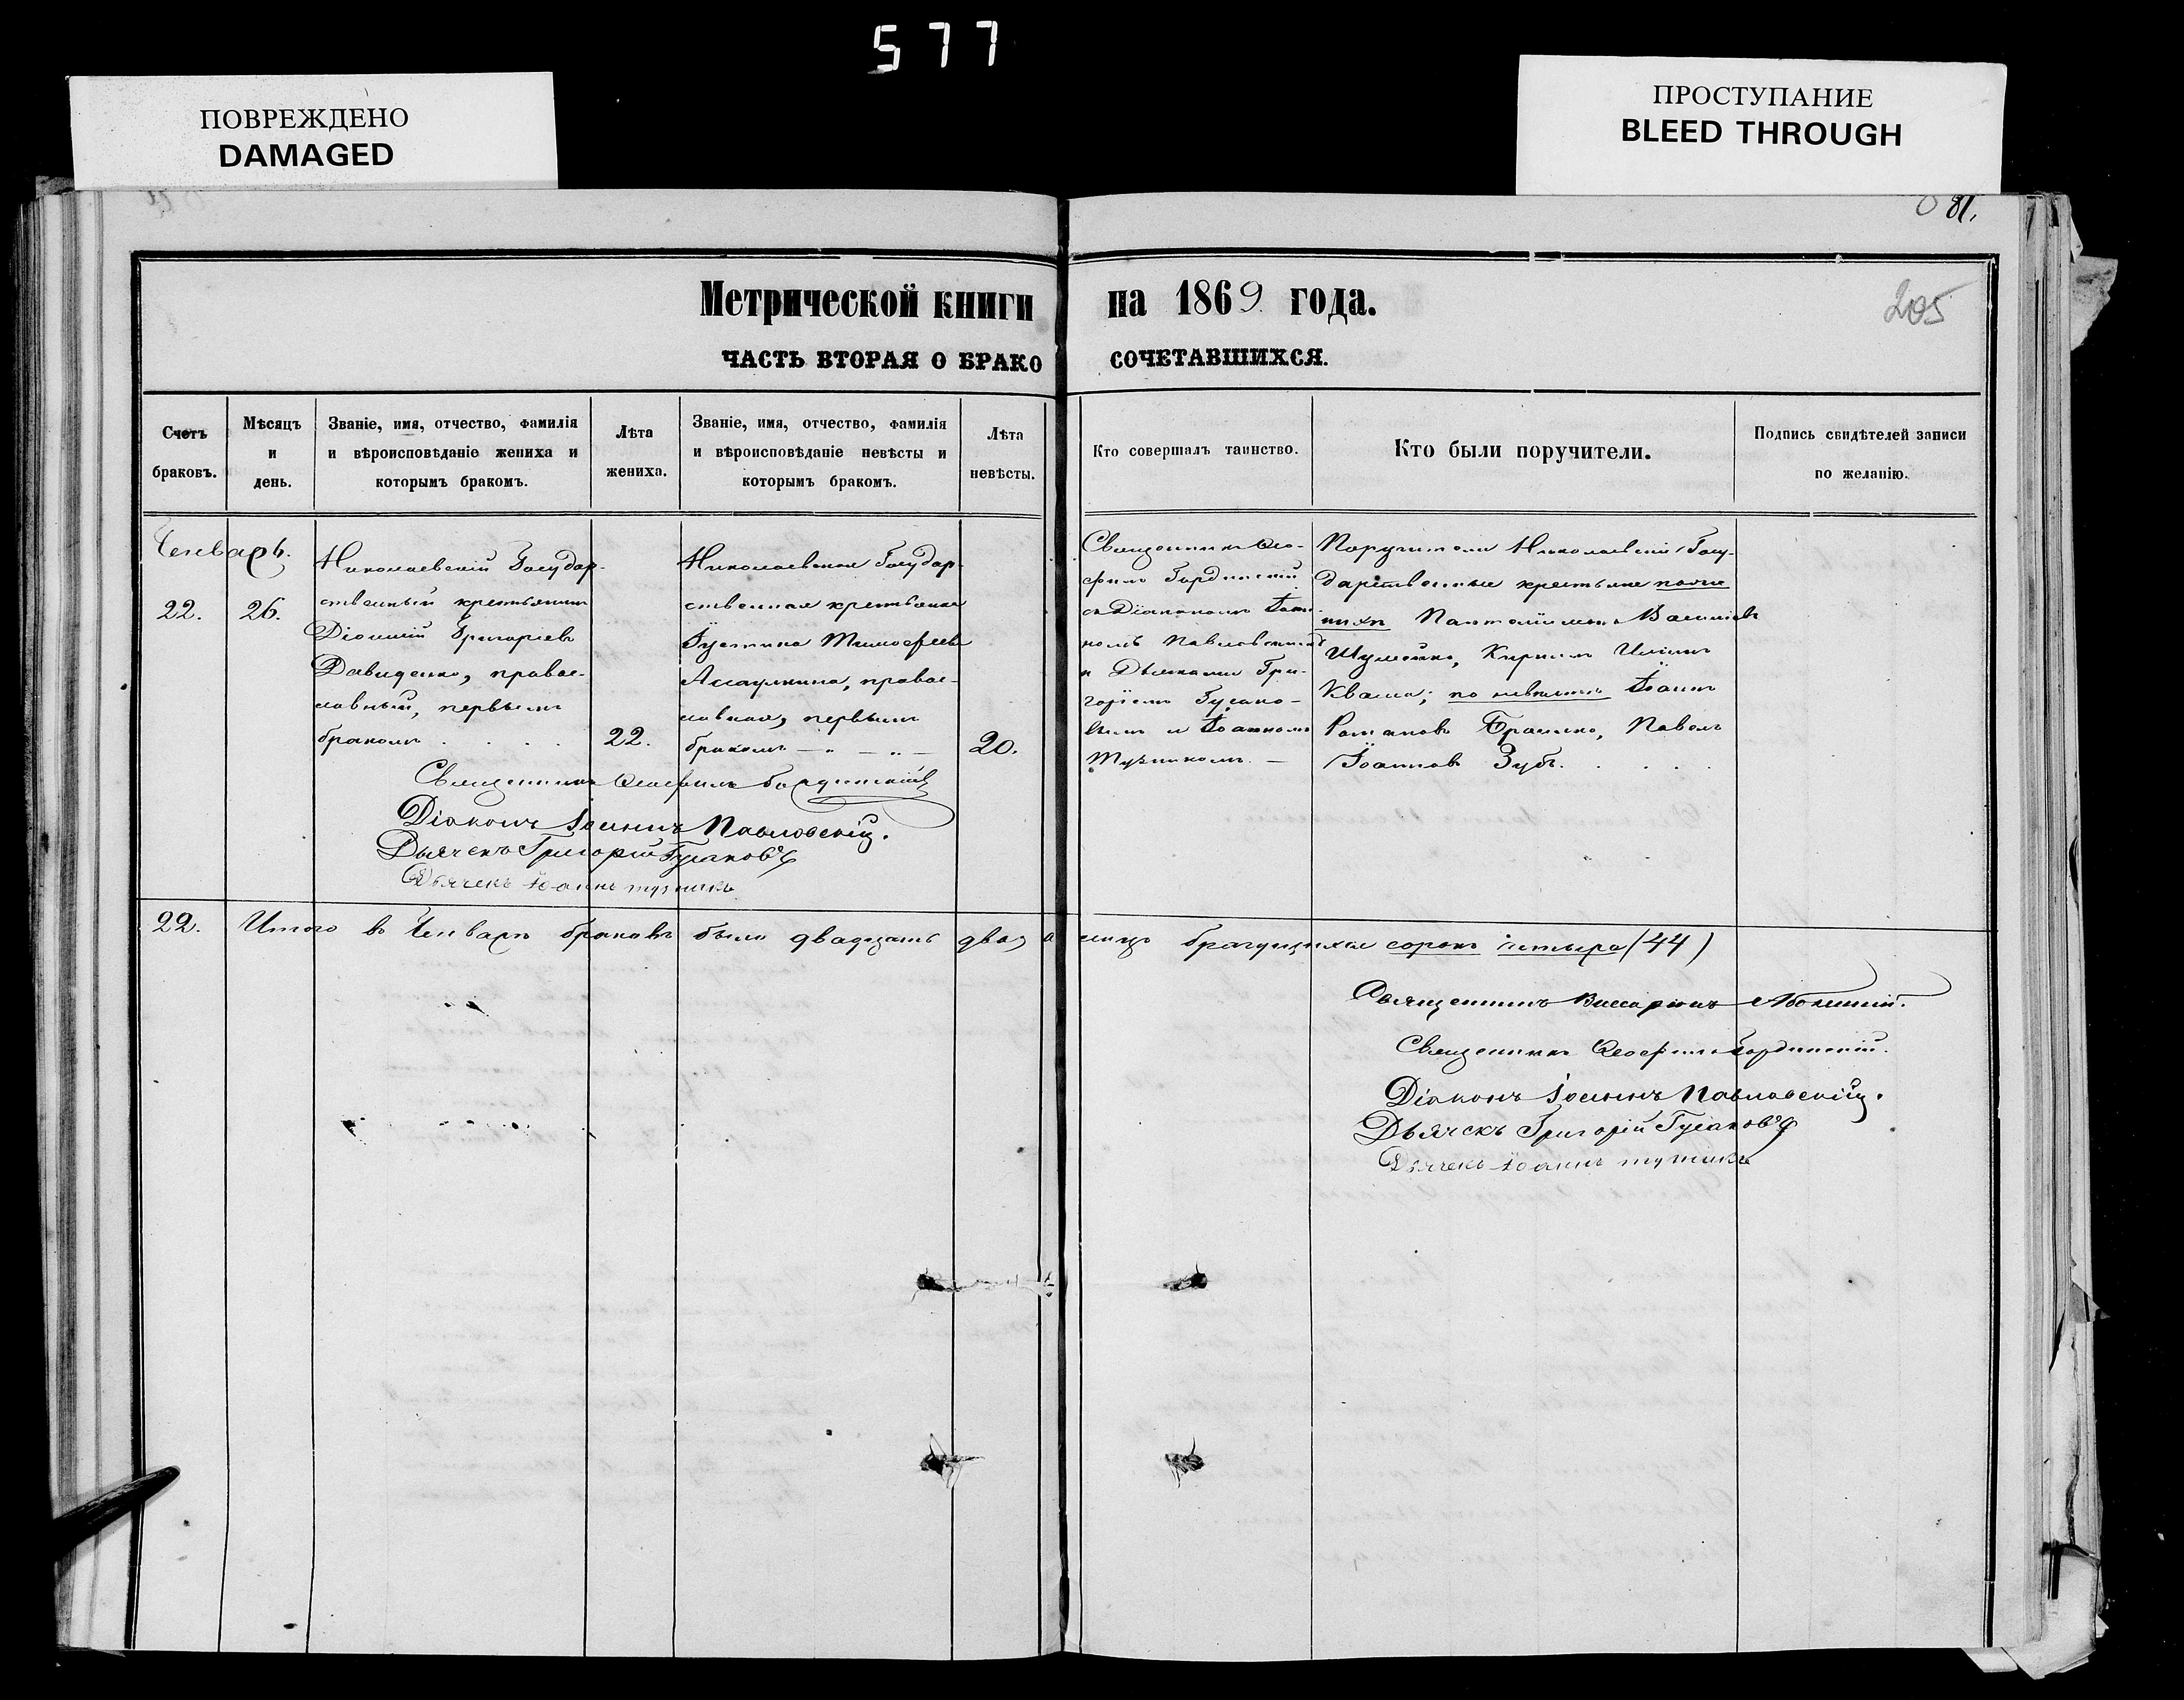 577
ПОВРЕЖДЕНО
DAMAGED
ПРОСТУПАНИЕ
BLEED THROUGH
81.
205
Метрической книги на 1869 года.
ЧАСТЬ ВТОРАЯ О БРАКОСОЧЕТАВШИХСЯ.
Счетъ браковъ.
Мѣсяцъ и день.
Званіе, имя, отчество, фамилія и вѣроисповѣданіе жениха и которымъ бракомъ.
Лѣта жениха.
Званіе, имя, отчество, фамилія и вѣроисповѣданіе невѣсты и которымъ бракомъ.
Лѣта невѣсты.
Кто совершалъ таинство.
Кто были поручители.
Подпись свидѣтелей записи по желанію.
Генварь.
22.
26.
Николаевскій Государ-
ственный крестьянинъ
Діонисій Григоріевъ
Давиденко, правос-
лавный, первымъ
бракомъ . . . .
22.
Николаевская Государ-
ственная крестьянка
Іустина Тимофеева
правос-
лавная, первымъ
бракомъ — „ — „ —
20.
Священникъ Ѳео-
филъ Бордынскій
съ Діакономъ Іоан-
номъ Павловскимъ
и Дьячками Гри-
горіемъ Гусако-
вымъ и Іоанномъ
Тузикомъ. —
Поручители Николаевскіе Госу-
дарственные крестьяне по же-
нихѣ Пантелиімонъ Василіевъ
Шулейко, Кириллъ Иліинъ
Кваша; по невѣстѣ Іоаннъ
Романовъ Павелъ
Іоанновъ Зубъ. . . . .
Священникъ Ѳеофилъ Бордынскій
Діаконъ Іоаннъ Павловскій.
Дьячекъ Григорій Гусаковъ
Дьячекъ Іоаннъ Тузикъ
22. Итого въ Генварѣ браковъ было двадцать два, а лицъ брачущихся сорокъ четыре (44)
Священникъ Виссаріонъ
Священникъ Ѳеофилъ Бордынскій.
Діаконъ Іоаннъ Павловскій.
Дьячекъ Григорій Гусаковъ
Дьячекъ Іоаннъ Тузикъ